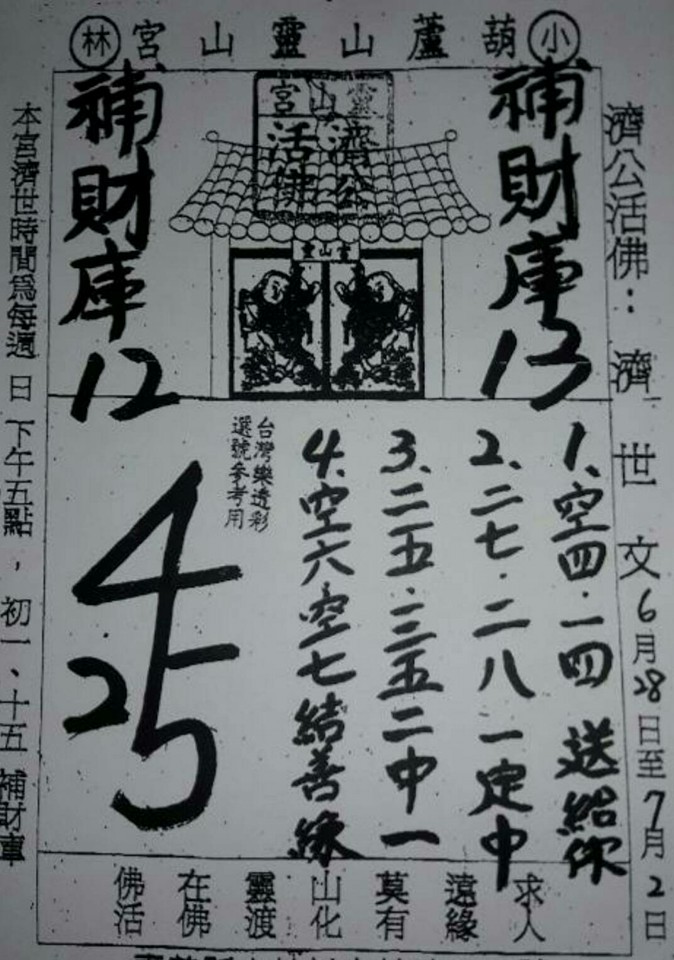 小葫蘆山靈山宮林
濟公活佛：濟世文 6月28日至7月2日
補財庫13
靈山宮
濟公
活佛
靈山宮
補財庫12
1、空四·一四 送給你
2、二七·二八 一定中
3、二五·三五二中一
4、空六·空七結善緣
台灣樂透彩
選號參考用
4
2 5
佛在靈山莫遠求
活佛渡化有緣人
本宮濟世時間為每週日下午五點，初一、十五補財庫